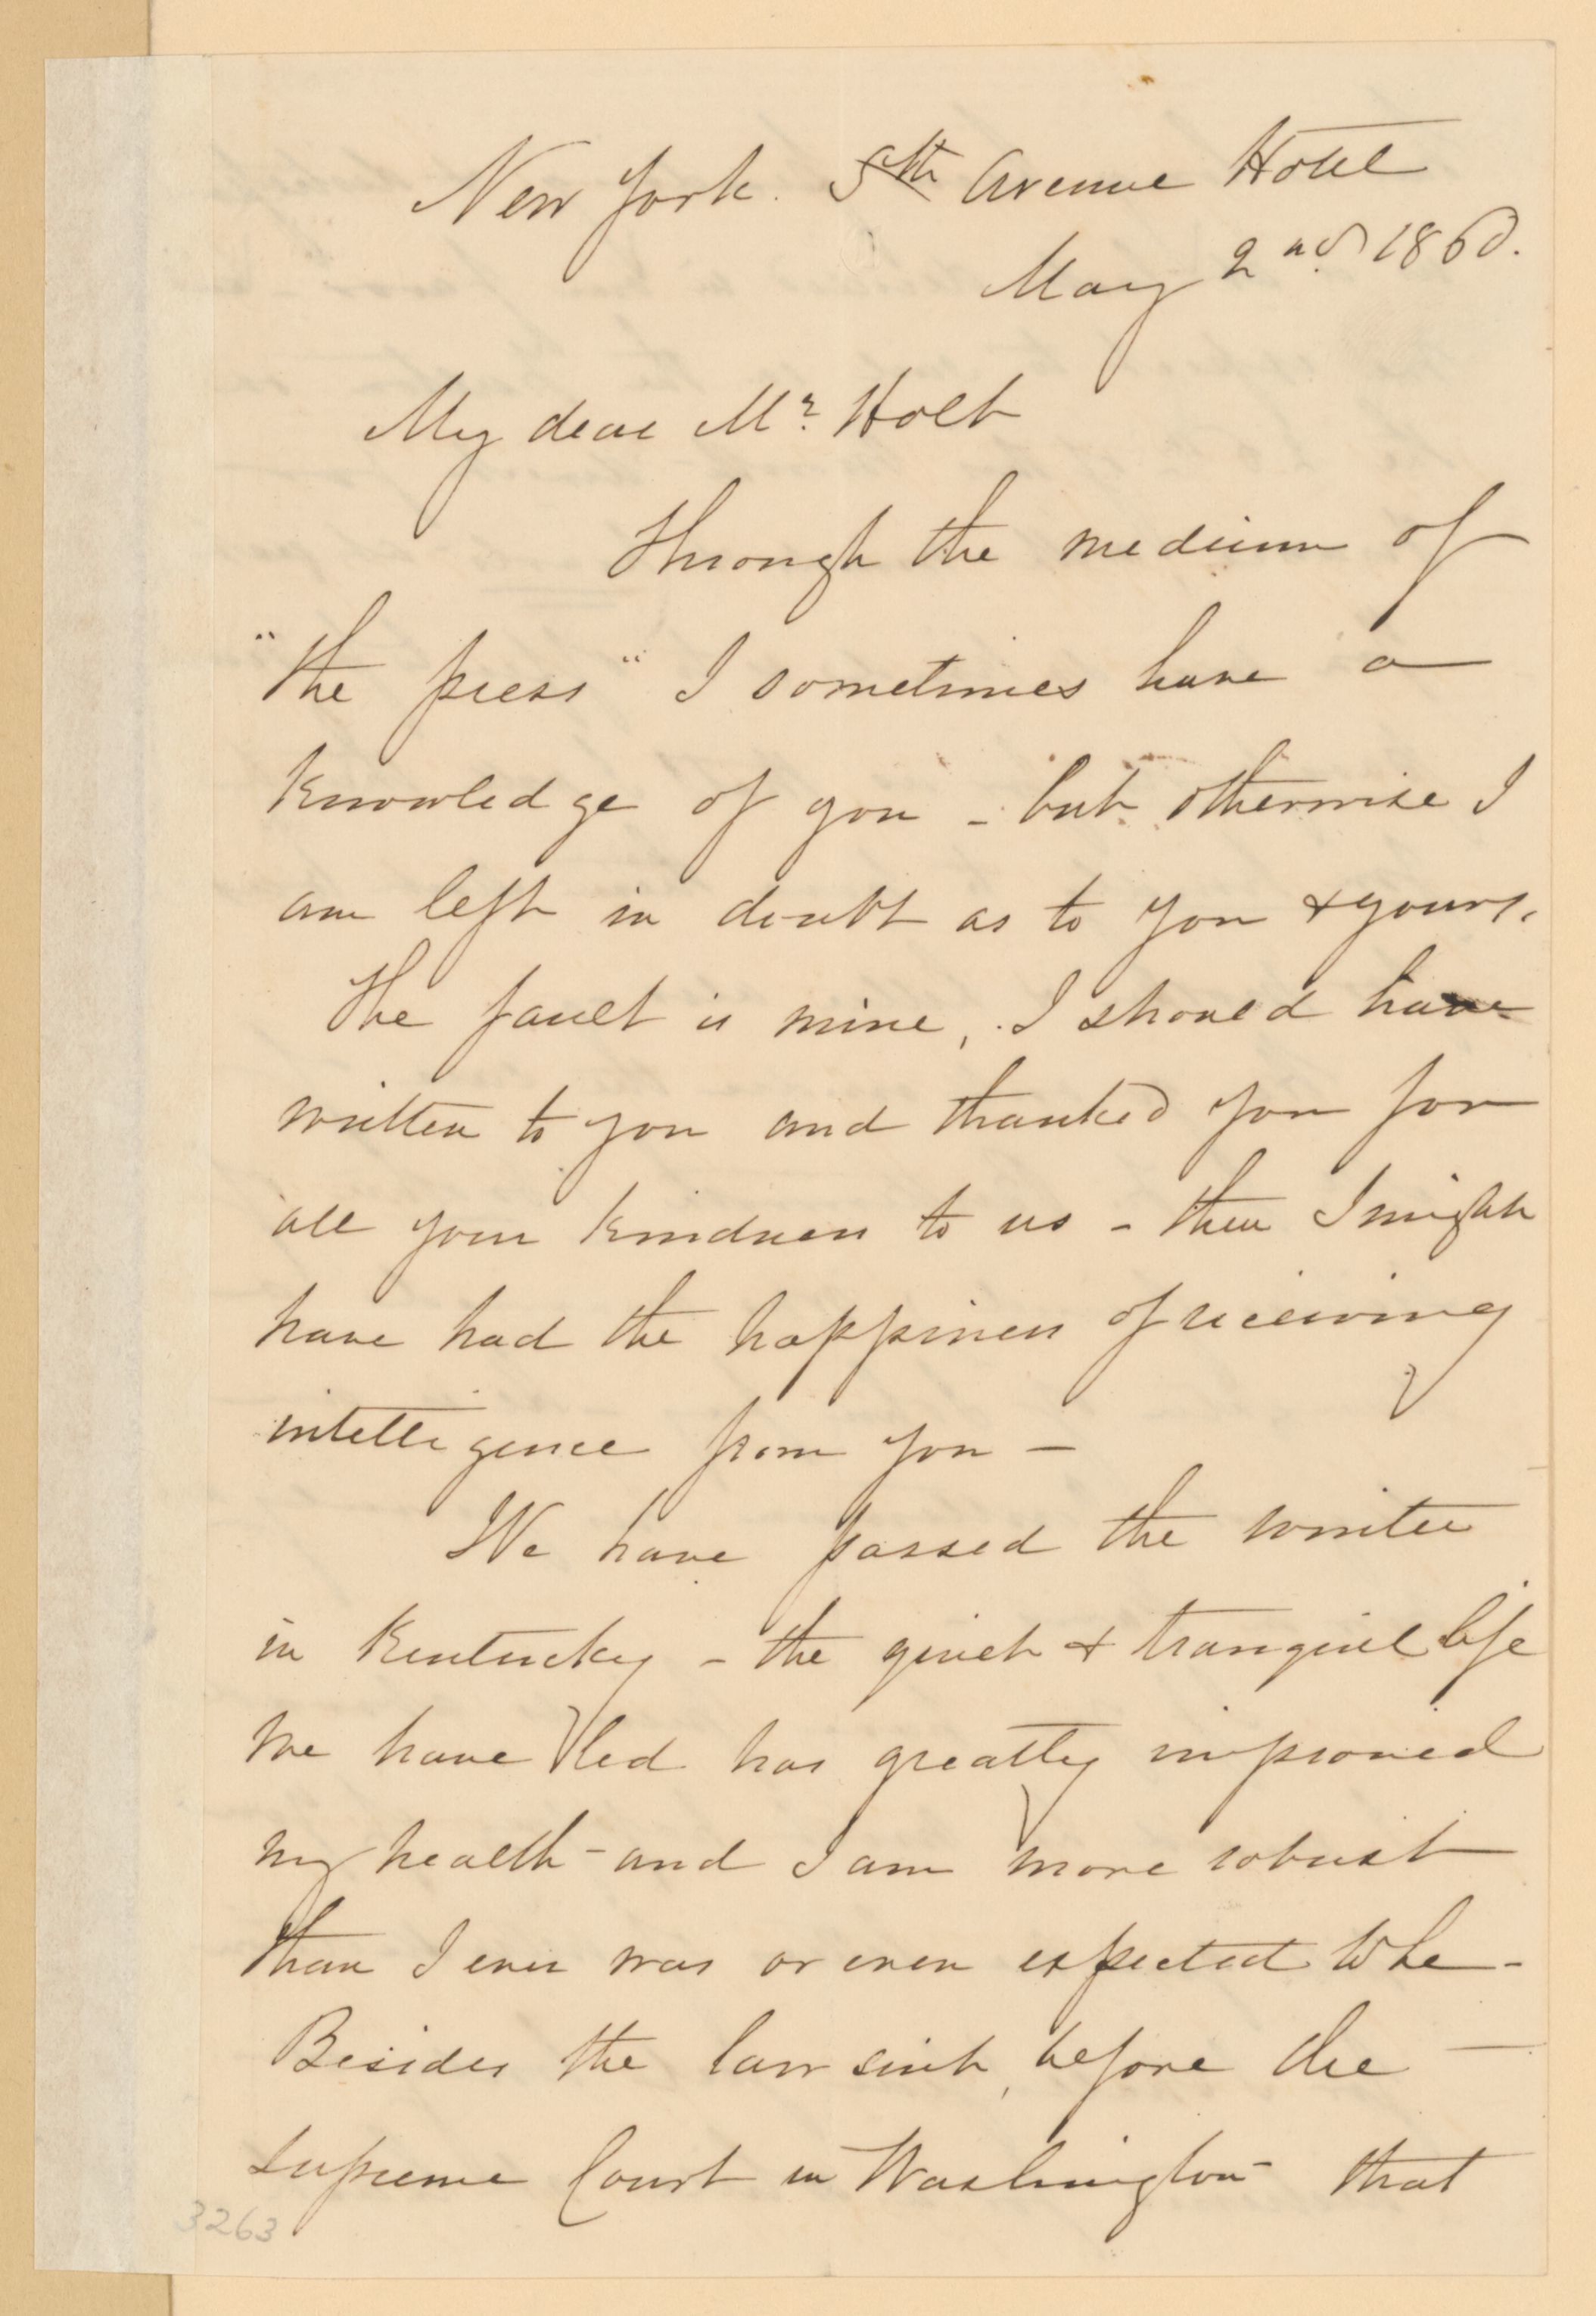 New York. 5th Avenue Hotel
May 2nd 1860.
My dear Mr. Holt
Through the medium of
"the press" I sometimes have a
knowledge of you - but otherwise I
am left in doubt as to you & yours.
The fault is mine, I should have
written to you and thanked you for
all your kindness to us - then I might
have had the happiness of receiving
intelligence from you -
We have passed the winter
in Kentucky - the quiet & tranquil life
we have led has greatly improved
my health - and I am more robust
than I ever was or even expected to be -
Besides the law suit, before the
Supreme Court in Washington - that
3263